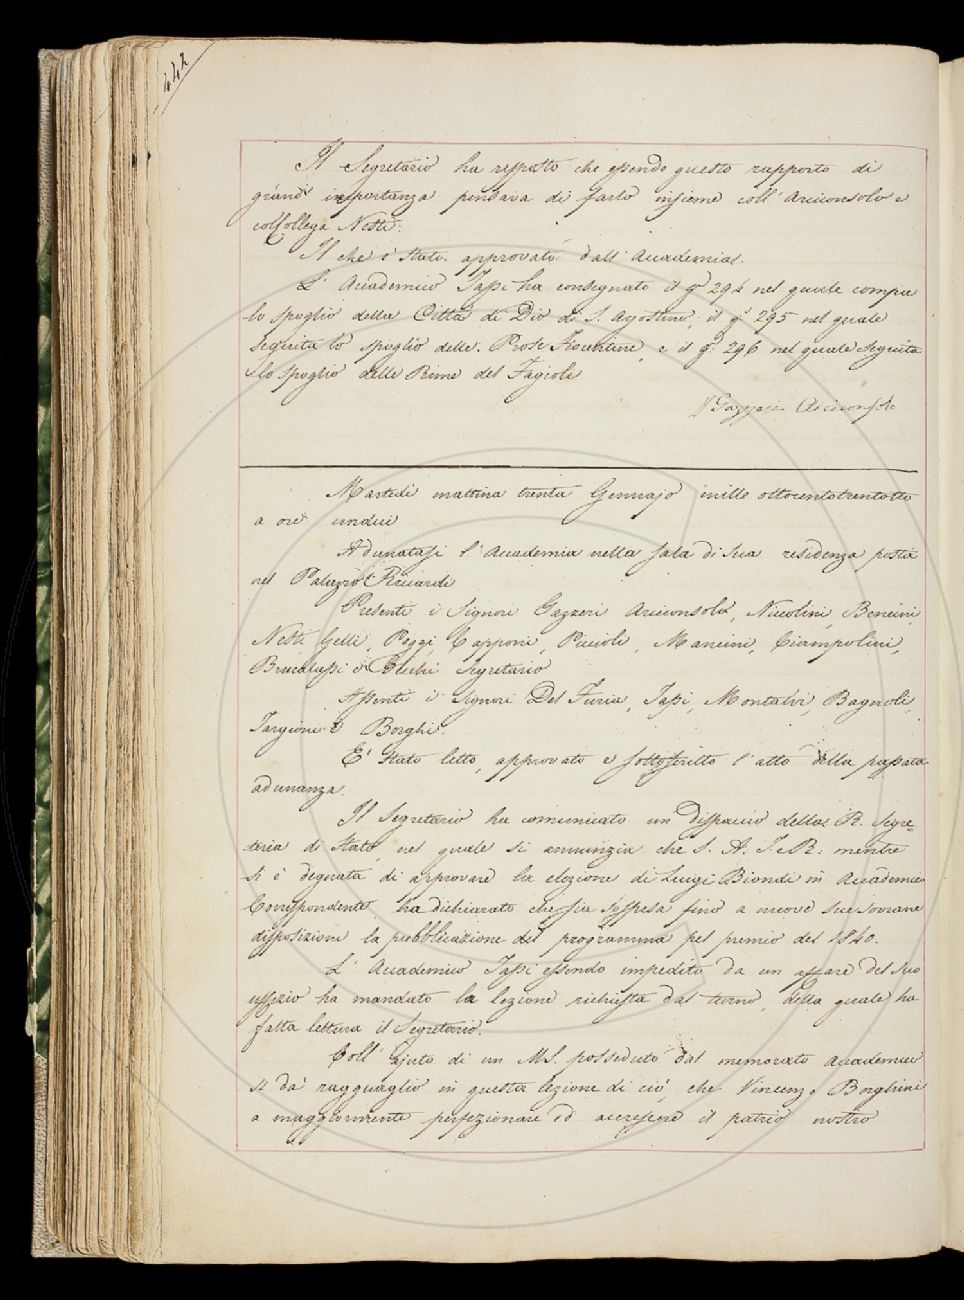 442
Il Segretario ha risposto che essendo questo rapporto di
grand' importanza pensava di farlo insieme coll' Arciconsolo e
col Collega Nesti.
Il che è stato approvato dall' Accademia.
L' Accademico Tassi ha consegnato il q.º 294 nel quale compie
lo spoglio della Città di Dio di S. Agostino, il q.º 295 nel quale
seguita lo spoglio delle Prose Fiorentine, e il q.º 296 nel quale seguita
lo spoglio delle Rime del Fagioli
Gazzeri Arciconsolo
Martedì mattina trenta Gennajo mille ottocentotrentotto
a ore undici
Adunatasi l' Accademia nella sala di sua residenza posta
nel Palazzo Riccardi
Presenti i Signori Gazzeri Arciconsolo, Niccolini, Bencini,
Nesti, Gelli, Poggi, Capponi, Puccioli, Mancini, Ciampolini,
Brucalassi e Becchi Segretario
Assenti i Signori Del Furia, Tassi, Montalvi, Bagnoli,
Targioni e Borghi.
È stato letto, approvato e sottoscritto l' atto della passata
adunanza.
Il Segretario ha comunicato un Dispaccio della R. Segre=
teria di Stato, nel quale si annunzia che S. A. I. e R. mentre
si è degnata di approvare la elezione di Luigi Biondi in Accademico
Corrispondente, ha dichiarato che sia sospesa fino a nuove sue sovrane
disposizioni la pubblicazione del programma pel premio del 1840.
L' Accademico Tassi essendo impedito da un affare del suo
uffizio ha mandato la lezione richiesta dal turno, della quale ha
fatta lettura il Segretario.
Coll' ajuto di un MS. posseduto dal memorato Accademico
si dà ragguaglio in questa lezione di ciò, che Vincenzo Borghini
a maggiormente perfezionare ed accrescere il patrio nostro